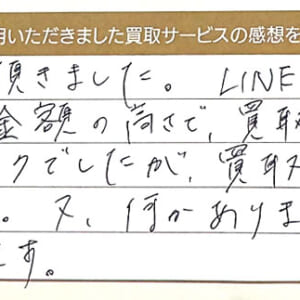 用いただきました買取サービスの感想を
頂きました。 LINE
金額の高さで、買取
クでしたが、買取
。又、何かありま
ます。